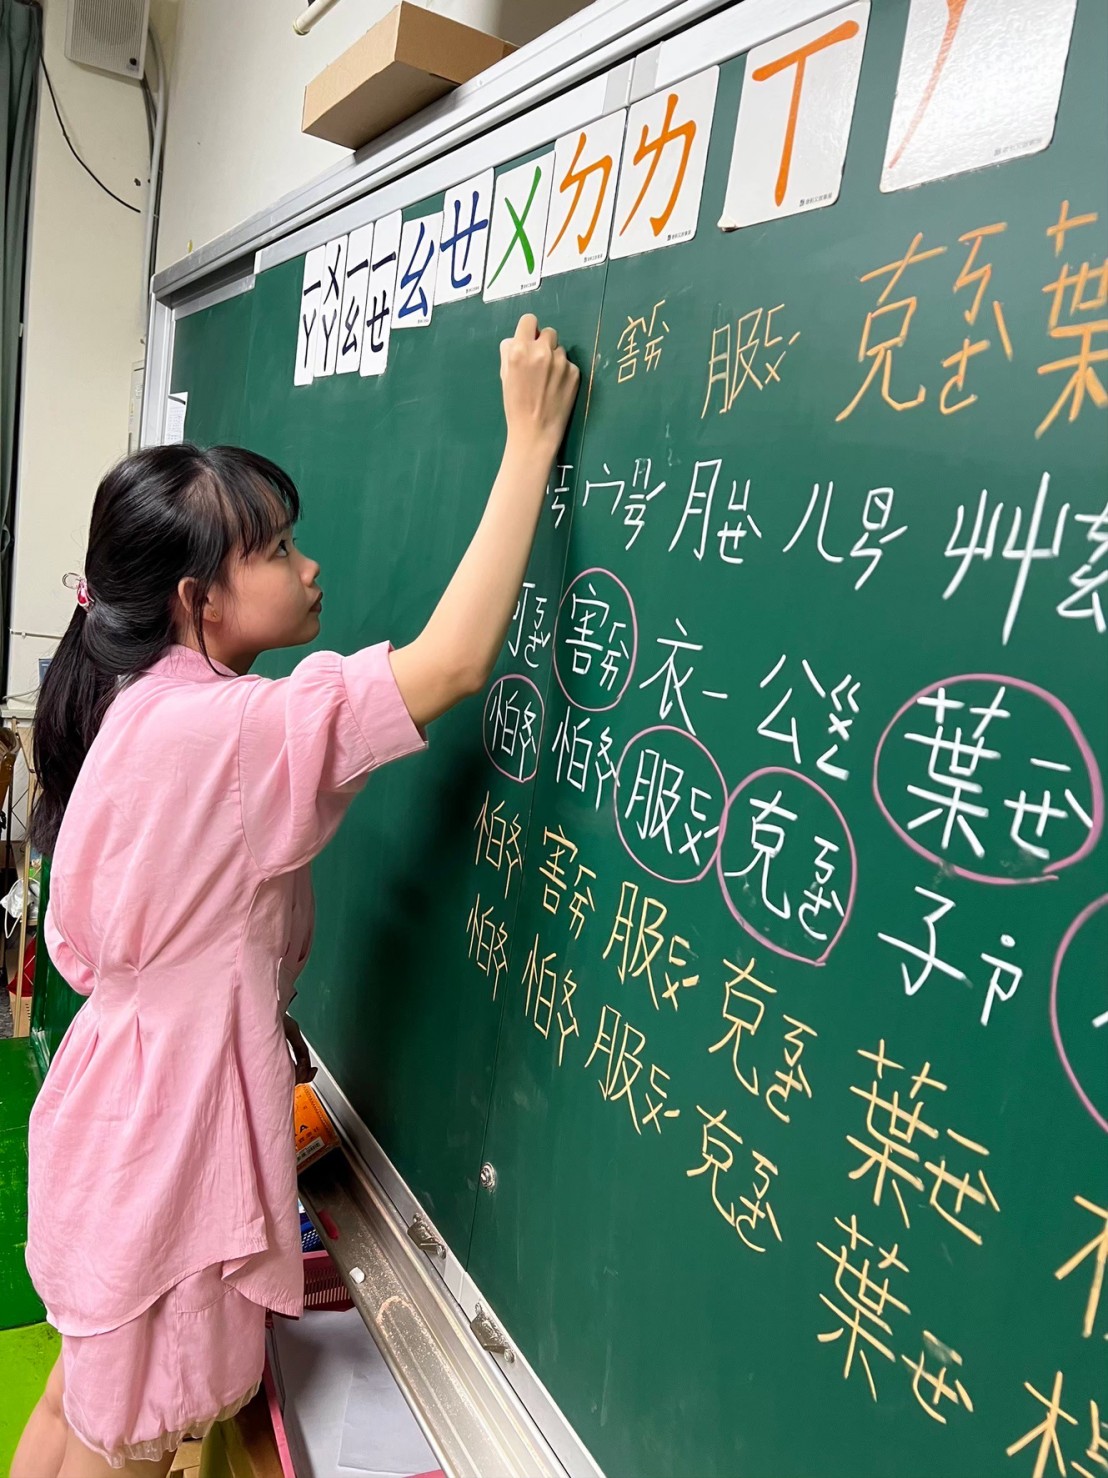 ㄧㄚ ㄨㄚ ㄧㄠ ㄧㄝ ㄠ ㄝ ㄨ ㄉ ㄌ ㄒ
害ㄏㄞˋ 服ㄈㄨˊ 克ㄎㄜˋ 葉
宀 月ㄩㄝˋ 儿 艸
可ㄎㄜˇ 害ㄏㄞˋ 衣ㄧ 公ㄍㄨㄥ 葉ㄧㄝˋ
怕ㄆㄚˋ 怕ㄆㄚˋ 服ㄈㄨˊ 克ㄎㄜˋ 子ㄗ˙
怕ㄆㄚˋ 害ㄏㄞˋ 服ㄈㄨˊ 克ㄎㄜˋ 葉ㄧㄝˋ
怕ㄆㄚˋ 怕ㄆㄚˋ 服ㄈㄨˊ 克ㄎㄜˋ 葉ㄧㄝˋ